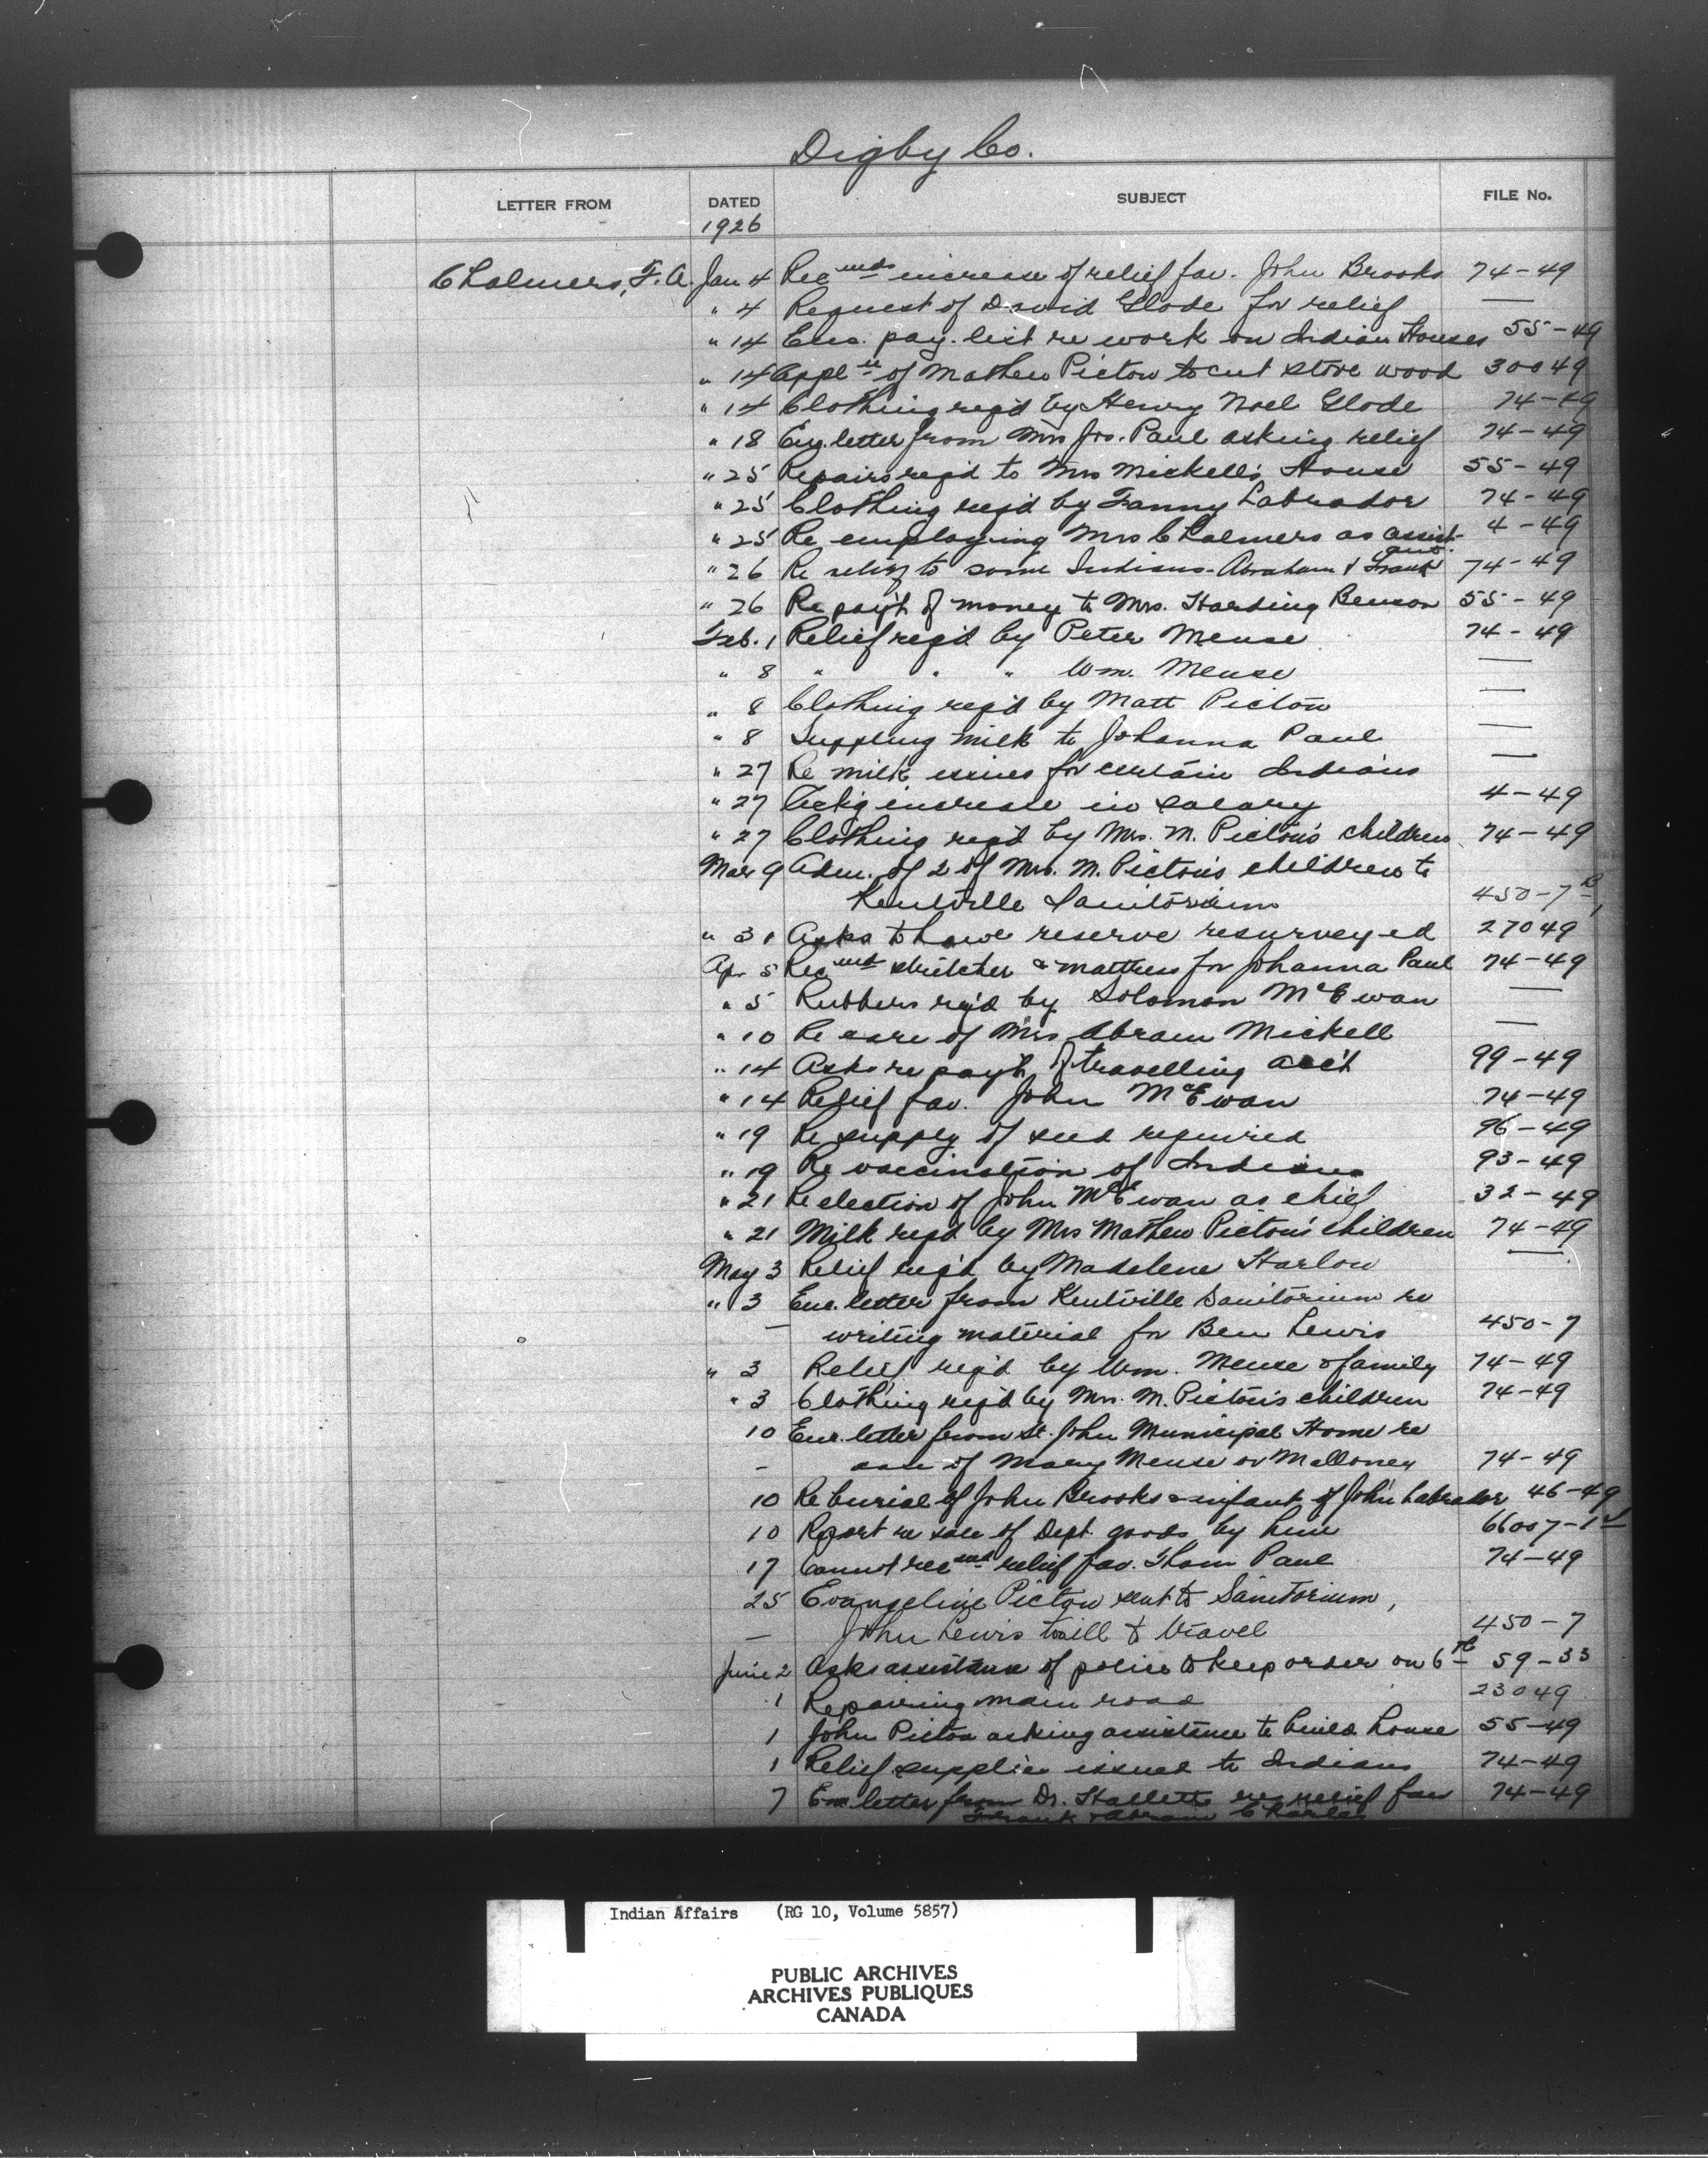 Digby Co.
LETTER FROM DATED SUBJECT FILE No.
1926
Chalmers, F. A. Jan 4 Recmds increase of relief fav. John Brooks 74-49
" 4 Request of David Glode for relief —
" 14 Enc. pay. list re work on Indian Houses 55-49
" 14 Appl of Mathew Pictou to cut stove wood 30049
" 14 Clothing req'd by Henry Noel Glode 74-49
" 18 letter from Mrs Jos. Paul asking relief 74-49
" 25 Repairs req'd to Mrs Mickell's House 55-49
" 25 Clothing req'd by Fanny Labrador 74-49
" 25 Re employing Mrs Chalmers as assist- 4-49
ant.
" 26 Re relief to some Indians - Abraham & Frank 74-49
" 26 Re pay't of money to Mrs. Harding Benson 55-49
Feb. 1 Relief req'd by Peter Meuse 74-49
" 8 " " " Wm. Meuse —
" 8 Clothing req'd by Matt Pictou —
" 8 Suppling milk to Johanna Paul —
" 27 Re milk issues for certain Indians —
" 27 increase in salary 4-49
" 27 Clothing req'd by Mrs. M. Pictou's children 74-49
Mar 9 Adm. of 2 of Mrs. M. Pictou's children to
Kentville Sanitorium 450-7
" 31 Asks to have reserve resurveyed 27049
Apr 5 Recmd stretcher & mattress for Johanna Paul 74-49
" 5 Rubbers rq'd by Solomon McEwan —
" 10 Re care of Mrs Abram Mickell —
" 14 Asks re pay't of travelling acc't 99-49
" 14 Relief fav. John McEwan 74-49
" 19 Re supply of seed required 96-49
" 19 Re vaccination of Indians 93-49
" 21 Re election of John McEwan as chief 32-49
" 21 Milk req'd by Mrs Mathew Pictou's children 74-49
May 3 Relief req'd by Madelene Harlow —
" 3 Enc. letter from Kentville Sanitorium re
— writing material for Ben Lewis 450-7
" 3 Relief req'd by Wm. Meuse & family 74-49
" 3 Clothing req'd by Mrs. M. Pictou's children 74-49
10 Enc. letter from St. John Municipal Home re
— care of Mary Meuse or Malloney 74-49
10 Re burial of John Brooks & infant of John Labrador 46-49
10 Report re sale of Dept. goods by him 66007-1
17 Cannot recmd relief fav. Thom Paul 74-49
25 Evangeline Pictou sent to Sanitorium,
— John Lewis to ill to travel 450-7
June 2 Asks assistance of police to keep order on 6th 59-33
1 Repairing main road 23049
1 John Pictou asking assistance to build house 55-49
1 Relief supplies issued to Indians 74-49
7 Enc letter from Dr. Hallett re relief fav 74-49
Frank & Abram Charles
Indian Affairs (RG 10, Volume 5857)
PUBLIC ARCHIVES
ARCHIVES PUBLIQUES
CANADA